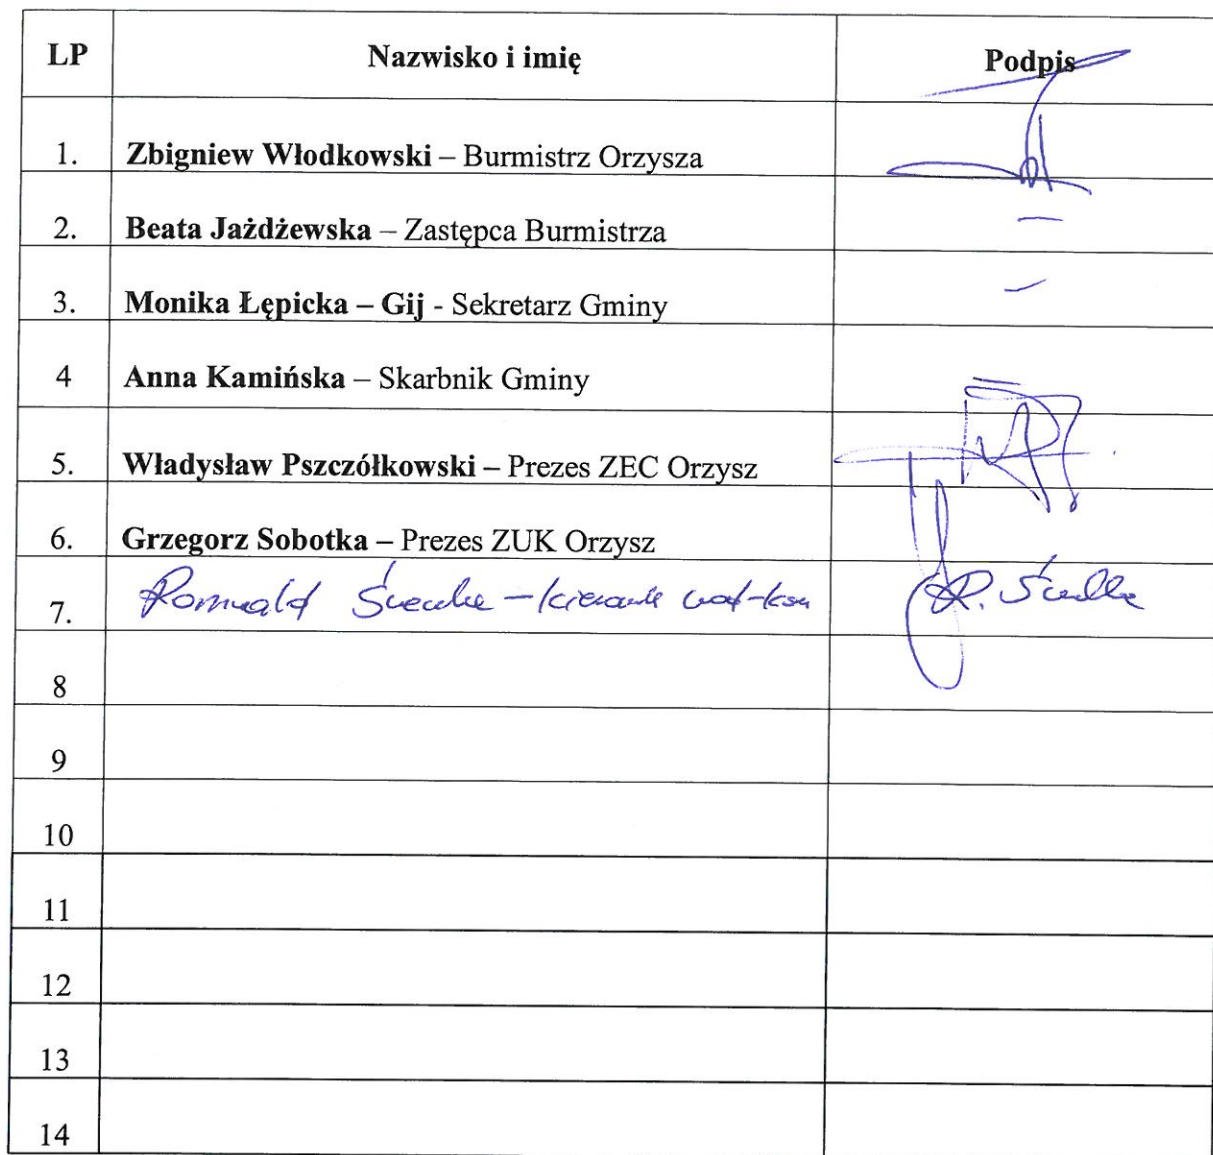 LP Nazwisko i imię Podpis
1. Zbigniew Włodkowski – Burmistrz Orzysza
2. Beata Jażdżewska – Zastępca Burmistrza –
3. Monika Łępicka – Gij - Sekretarz Gminy –
4 Anna Kamińska – Skarbnik Gminy –
5. Władysław Pszczółkowski – Prezes ZEC Orzysz
6. Grzegorz Sobotka – Prezes ZUK Orzysz
7. Romuald – wod-kan R.
8
9
10
11
12
13
14